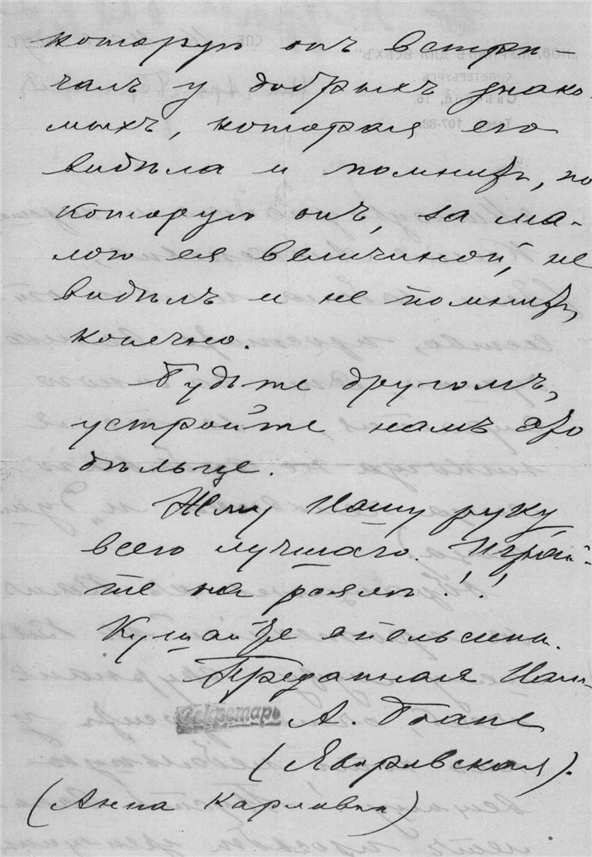 которую онъ встрѣ-
чалъ у добрыхъ знако-
мыхъ, которая его
видѣла и помнитъ, но
которую онъ, за ма-
лою ея величиной, не
видѣлъ и не помнитъ,
конечно.
Будьте другомъ,
устройте намъ это
дѣльце.
Жму Вашу руку,
всего лучшаго. Играй-
те на рояли!!
Кушайте апельсины.
Преданная Вам
Секретарь А.
(Яворовская).
(Анна Карловна)